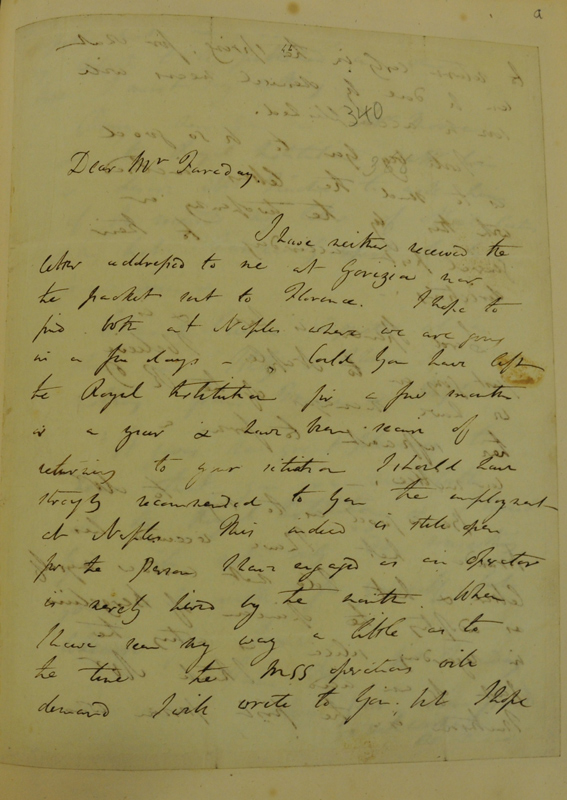 a
340
Dear Mr Faraday
I have neither received the
letter addressed to me at Gorizia nor
the packet sent to Florence. I hope to
find both at Naples where we are going
in a few days – Could you have left
the Royal Institution for a few months
or a year & have been secure of
returning to your situation I should have
strongly recommended to you the employment
at Naples. This indeed is still open
for the Person I have engaged as an operator
is merely hired by the month. When
I have seen my way a little as to
the time the MSS operations will
demand I will write to you, but I hope